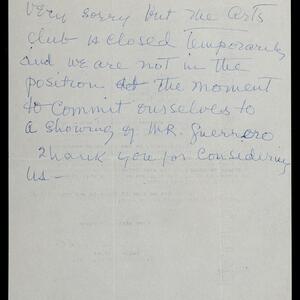 Very sorry but the arts
club is closed temporarily
and we are not in the
position at the moment
to commit ourselves to
a showing of MR. Guerrero
Thank you for considering
us -